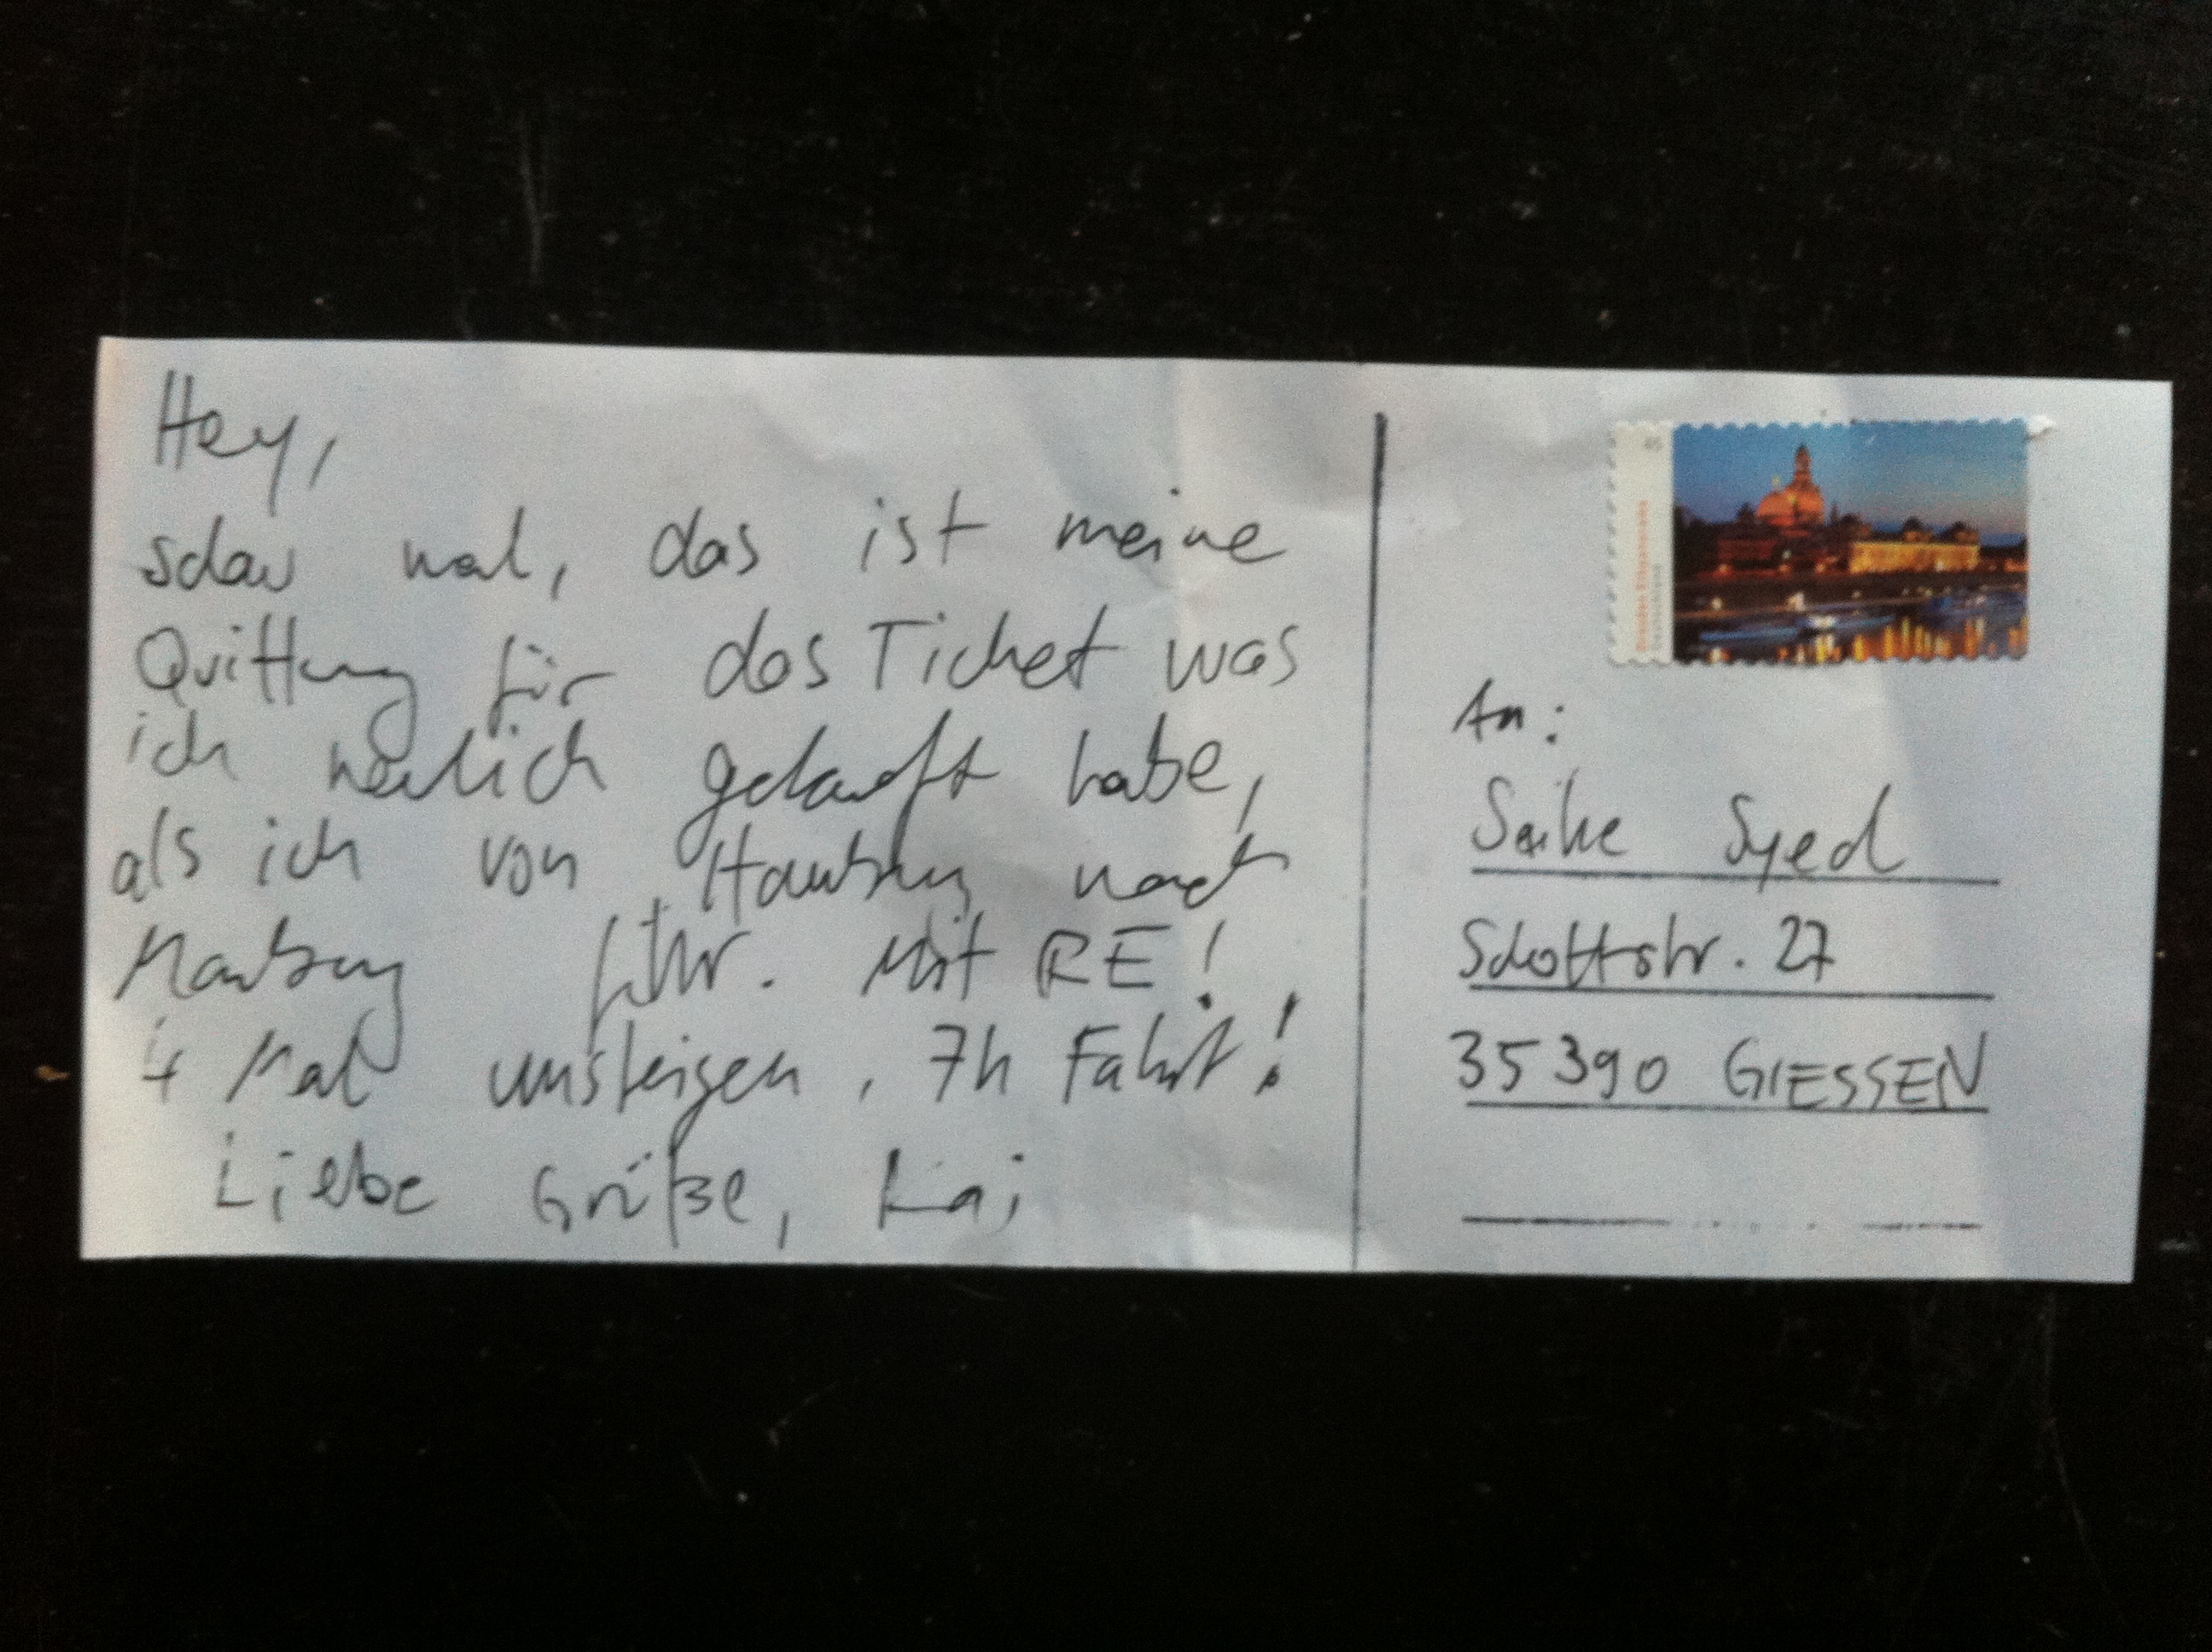 Hey,
schau mal, das ist meine
Quittung für das Ticket was
ich neulich gekauft habe,
als ich von Hamburg nach
Marburg fuhr. Mit RE!
4 Mal umsteigen, 7h Fahrt!
Liebe Grüße, Kai
45
Dresden Elbpanorama
Deutschland
An:
Syed
Schottstr. 27
35390 GIESSEN